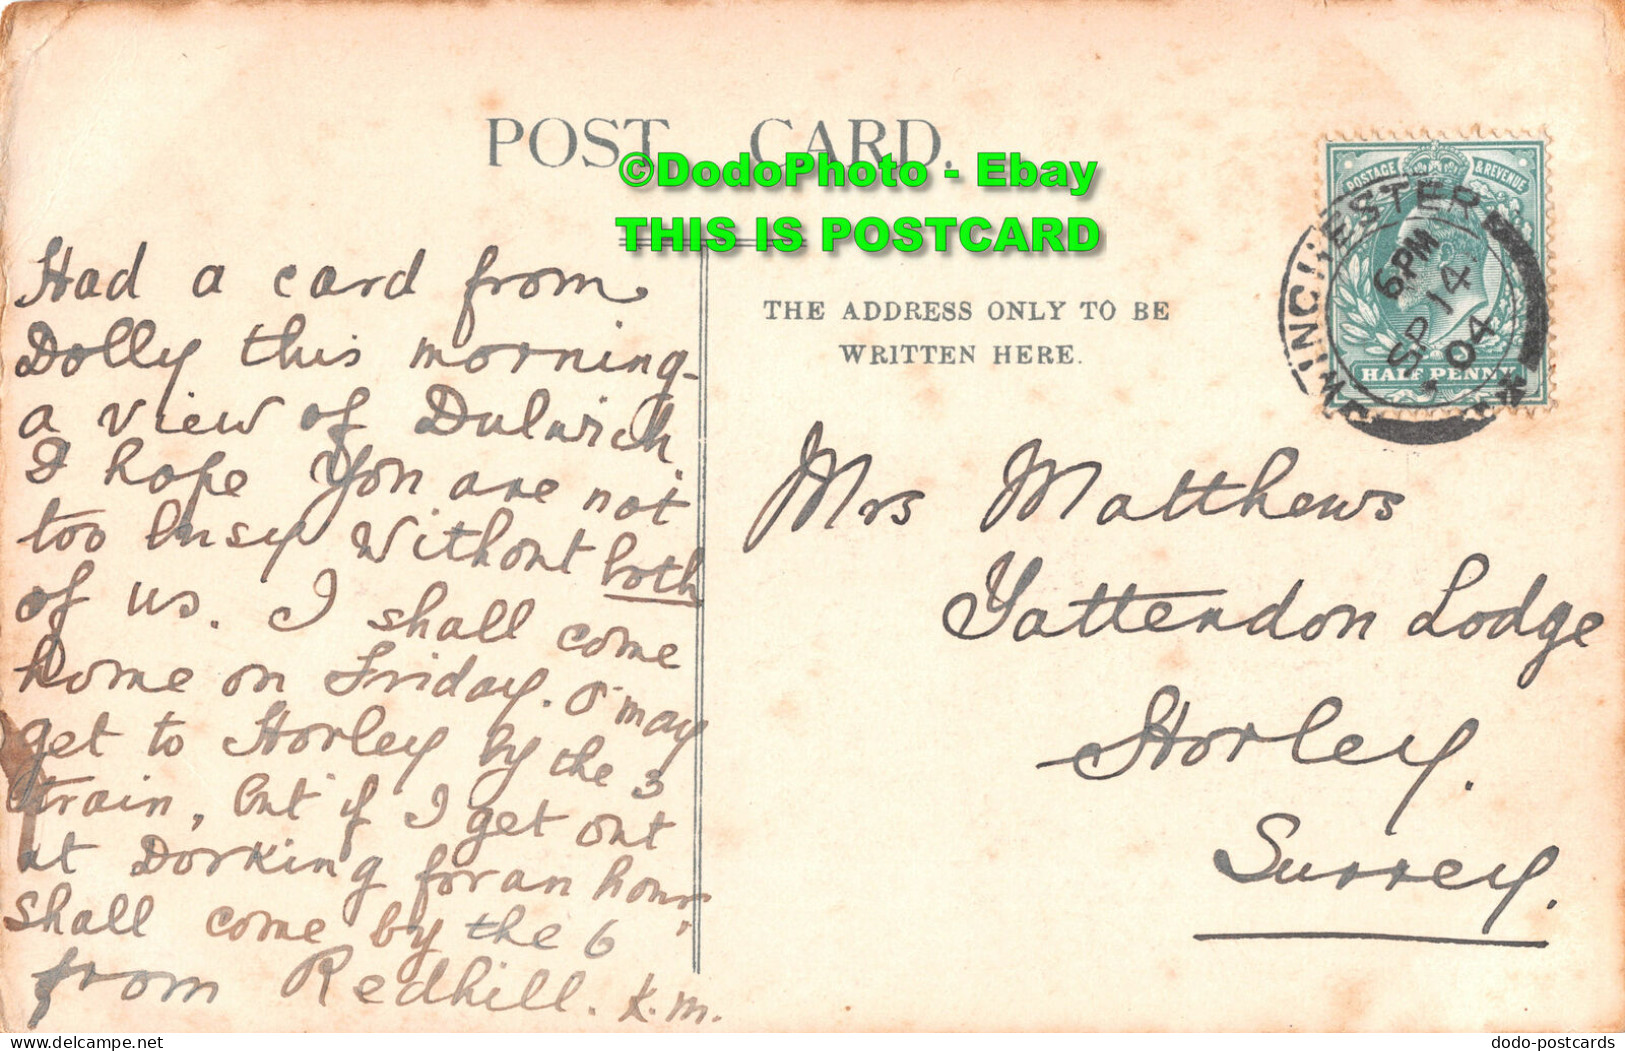 POST CARD.
©DodoPhoto - Ebay
THIS IS POSTCARD
THE ADDRESS ONLY TO BE
WRITTEN HERE.
POSTAGE & REVENUE
HALF PENNY
WINCHESTER
6 PM
SP 14
04
Had a card from
Dolly this morning -
a view of Dulwich.
I hope you are not
too busy without both
of us. I shall come
home on Friday. I may
get to Horley by the 3
train, but if I get out
at Dorking for an hour
shall come by the 6
from Redhill. K.M.
Mrs Matthews
Yattendon Lodge
Horley.
Surrey.
dodo-postcards
delcampe.net